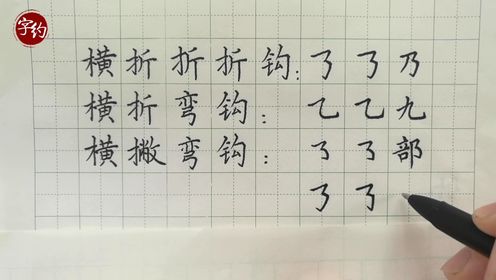 字约
横折折折钩：㇡ ㇡ 乃
横折弯钩：乙 乙 九
横撇弯钩：㇌ ㇌ 部
㇡ ㇡